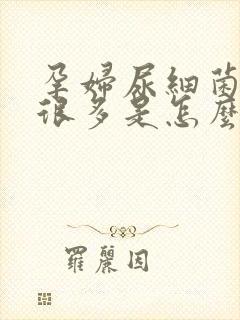 孕婦尿細菌
很多是怎麼
羅麗因